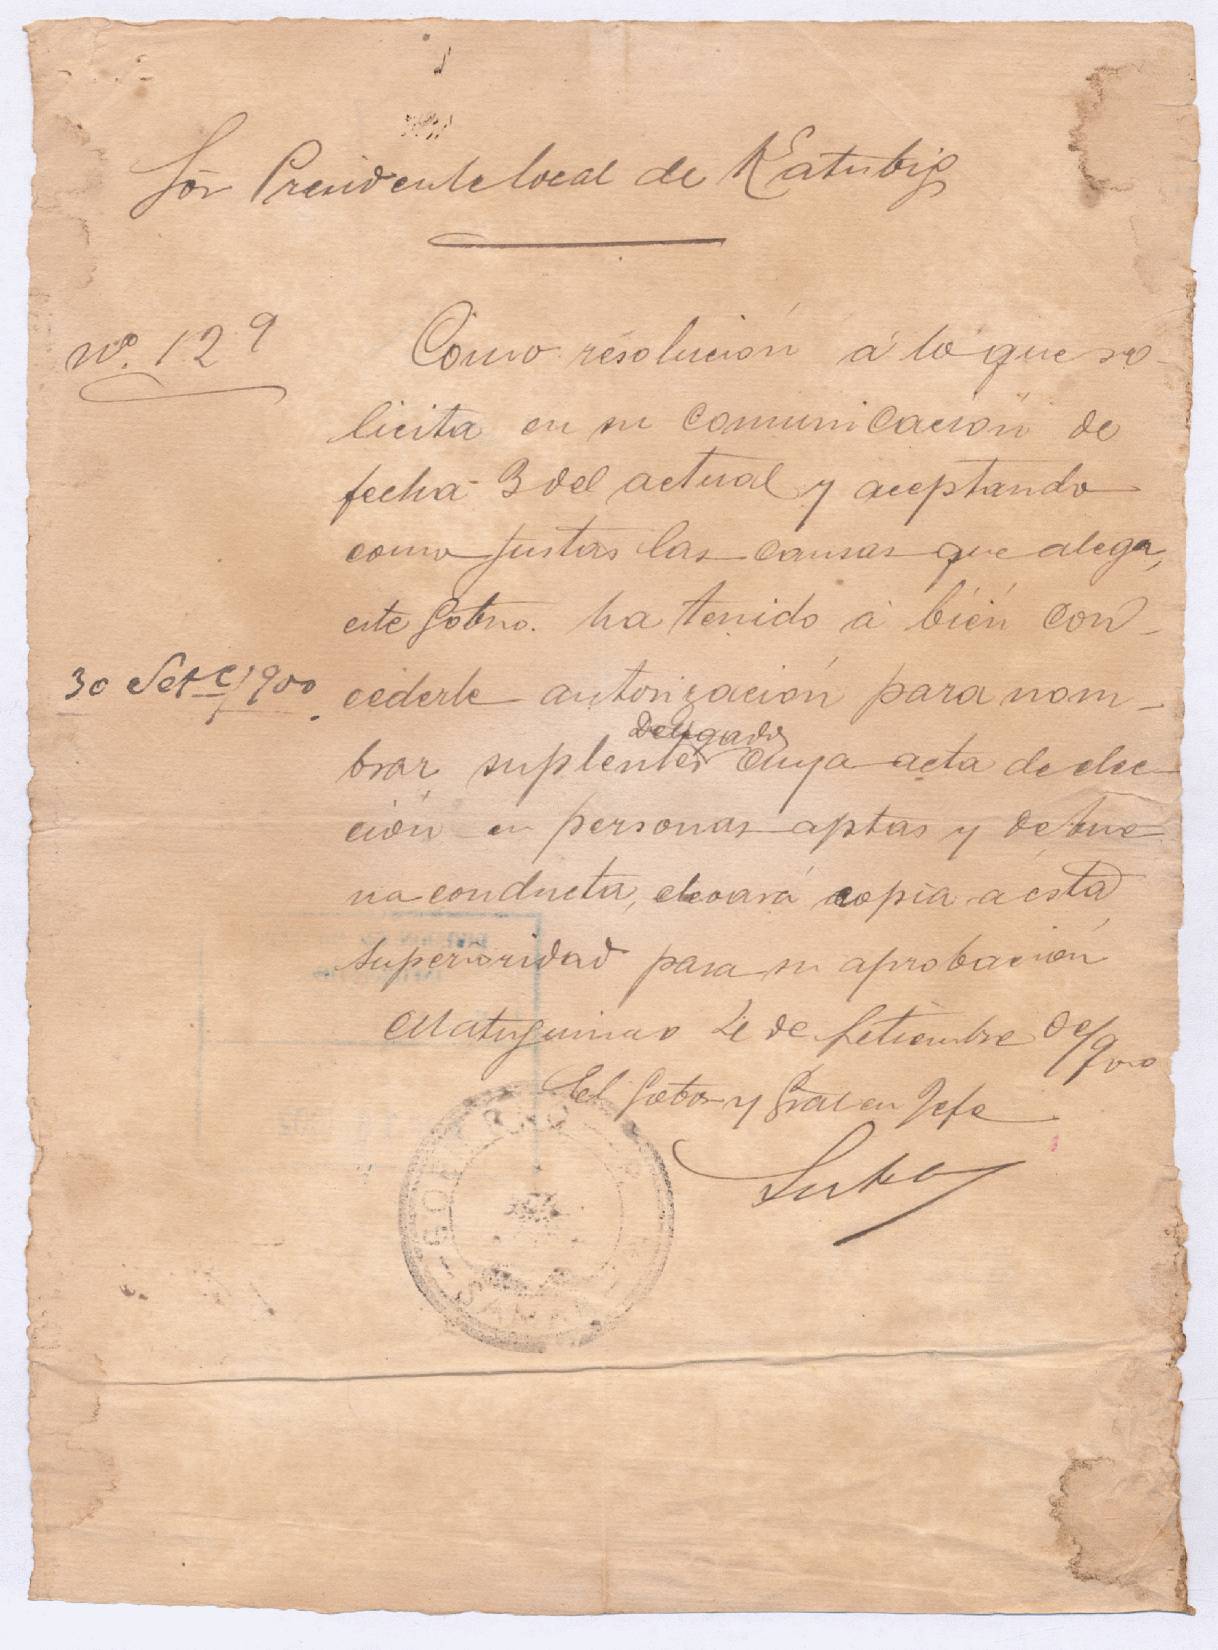 Sör Presidente local de Katubig
nº. 129
Como resolución á lo que so-
licita en su comunicación de
fecha 3 del actual y aceptando
como justas las causas que alega,
este Gobno. ha tenido á bién con-
30 Setᵉ/900.
cederle autorización para nom-
brar suplentes delegados cuya acta de elec-
ción en personas aptas y de bue-
na conducta, elevará copia a esta
superioridad para su aprobación
Matuguinao de Setiembre de/900
El Gobor y Gral en Jefe
Lukban